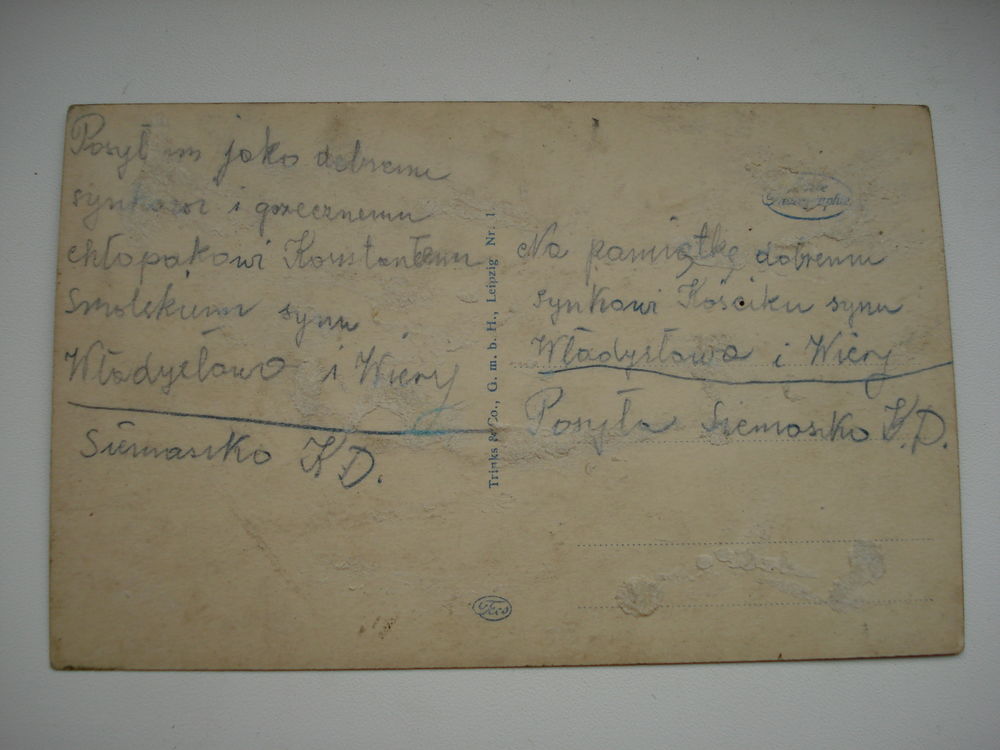 Posył im jako dobremu
synkowi i grzecznemu
chłopakowi Konstantemu
Smolskiemu synu
Władysława i Wiery
Siemaszko K D.
Trinks & Co., G. m. b. H., Leipzig Nr. 1
Na pamiątkę dobremu
synkowi Kościku synu
Władysława i Wiery
Posyła Siemaszko K. D.